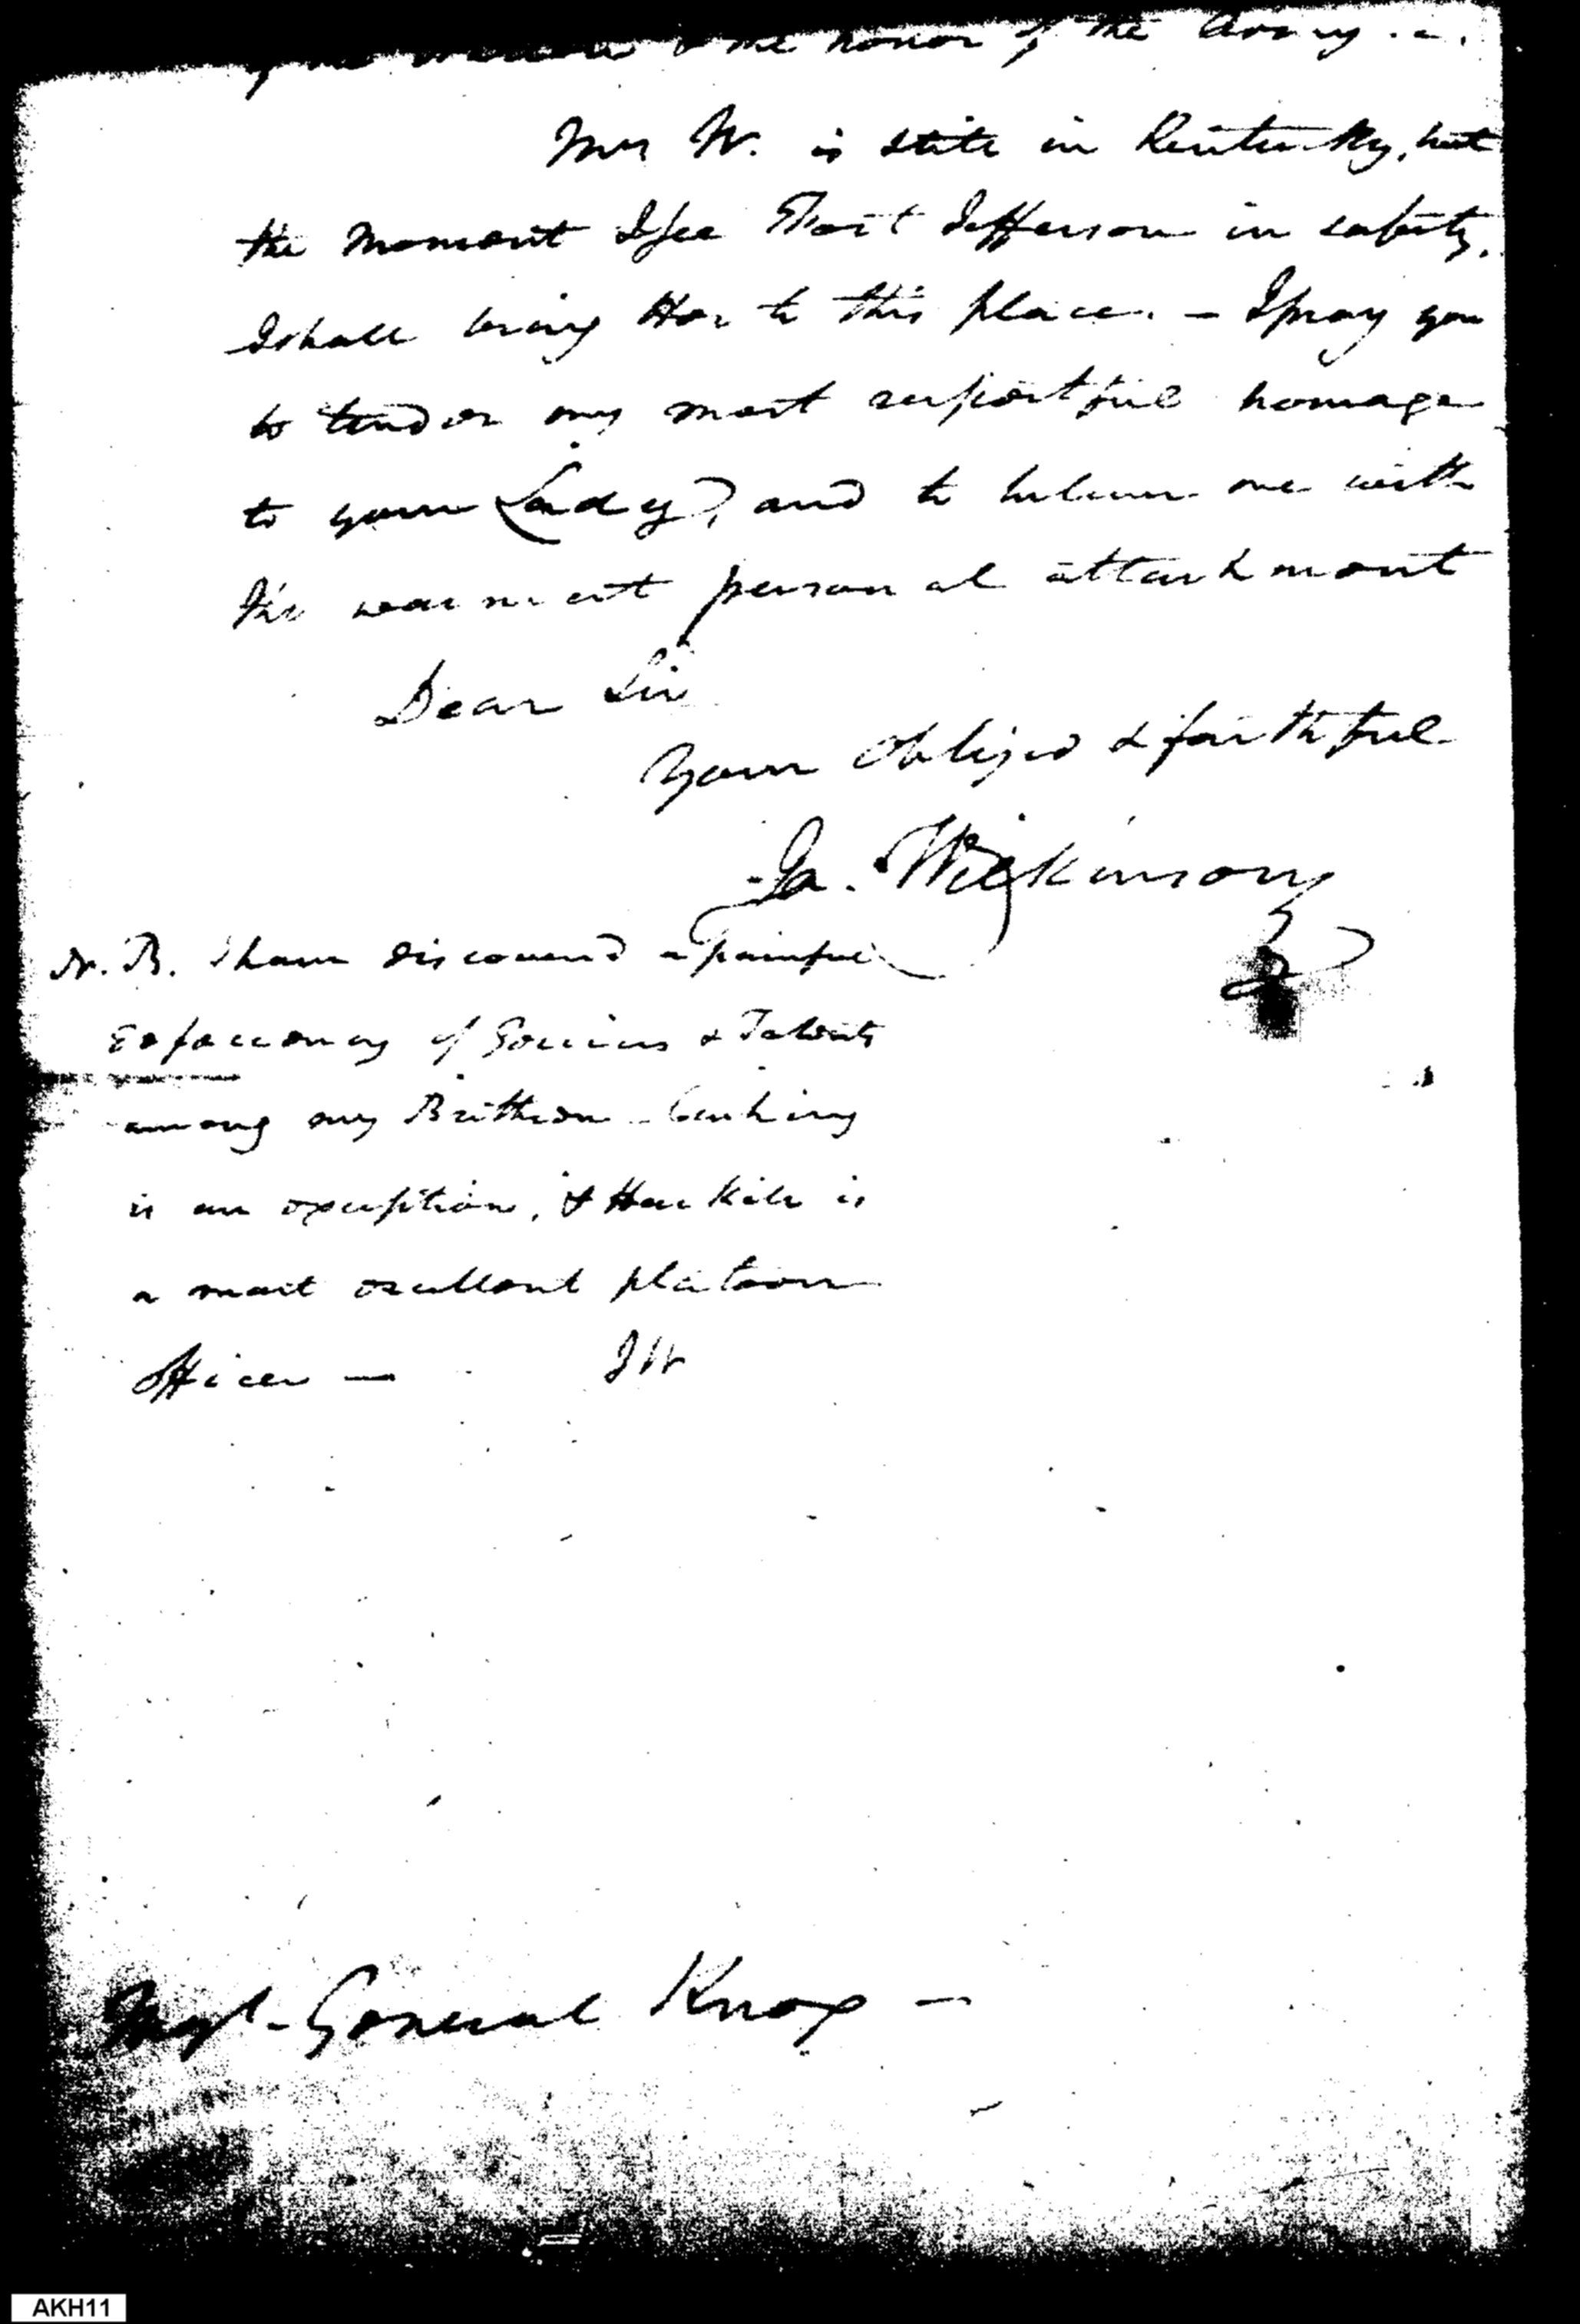 the honor of the Army . -
Mrs W. is still in Kentucky, but
the moment I see Fort Jefferson in safety,
I shall bring Her to this place. - I pray you
to tender my most respectful homage
to your Lady, and to believe me with
the warmest personal attachment
Dear Sir
Your Obliged & faithful
Ja. Wilkinson
N. B. I have discovered a painful
of Genius & Talents
among my Brethren - Cushing
is an exception, & Haskile is
a most excellent platoon
Officer — JW
Majr. General Knox -
AKH11